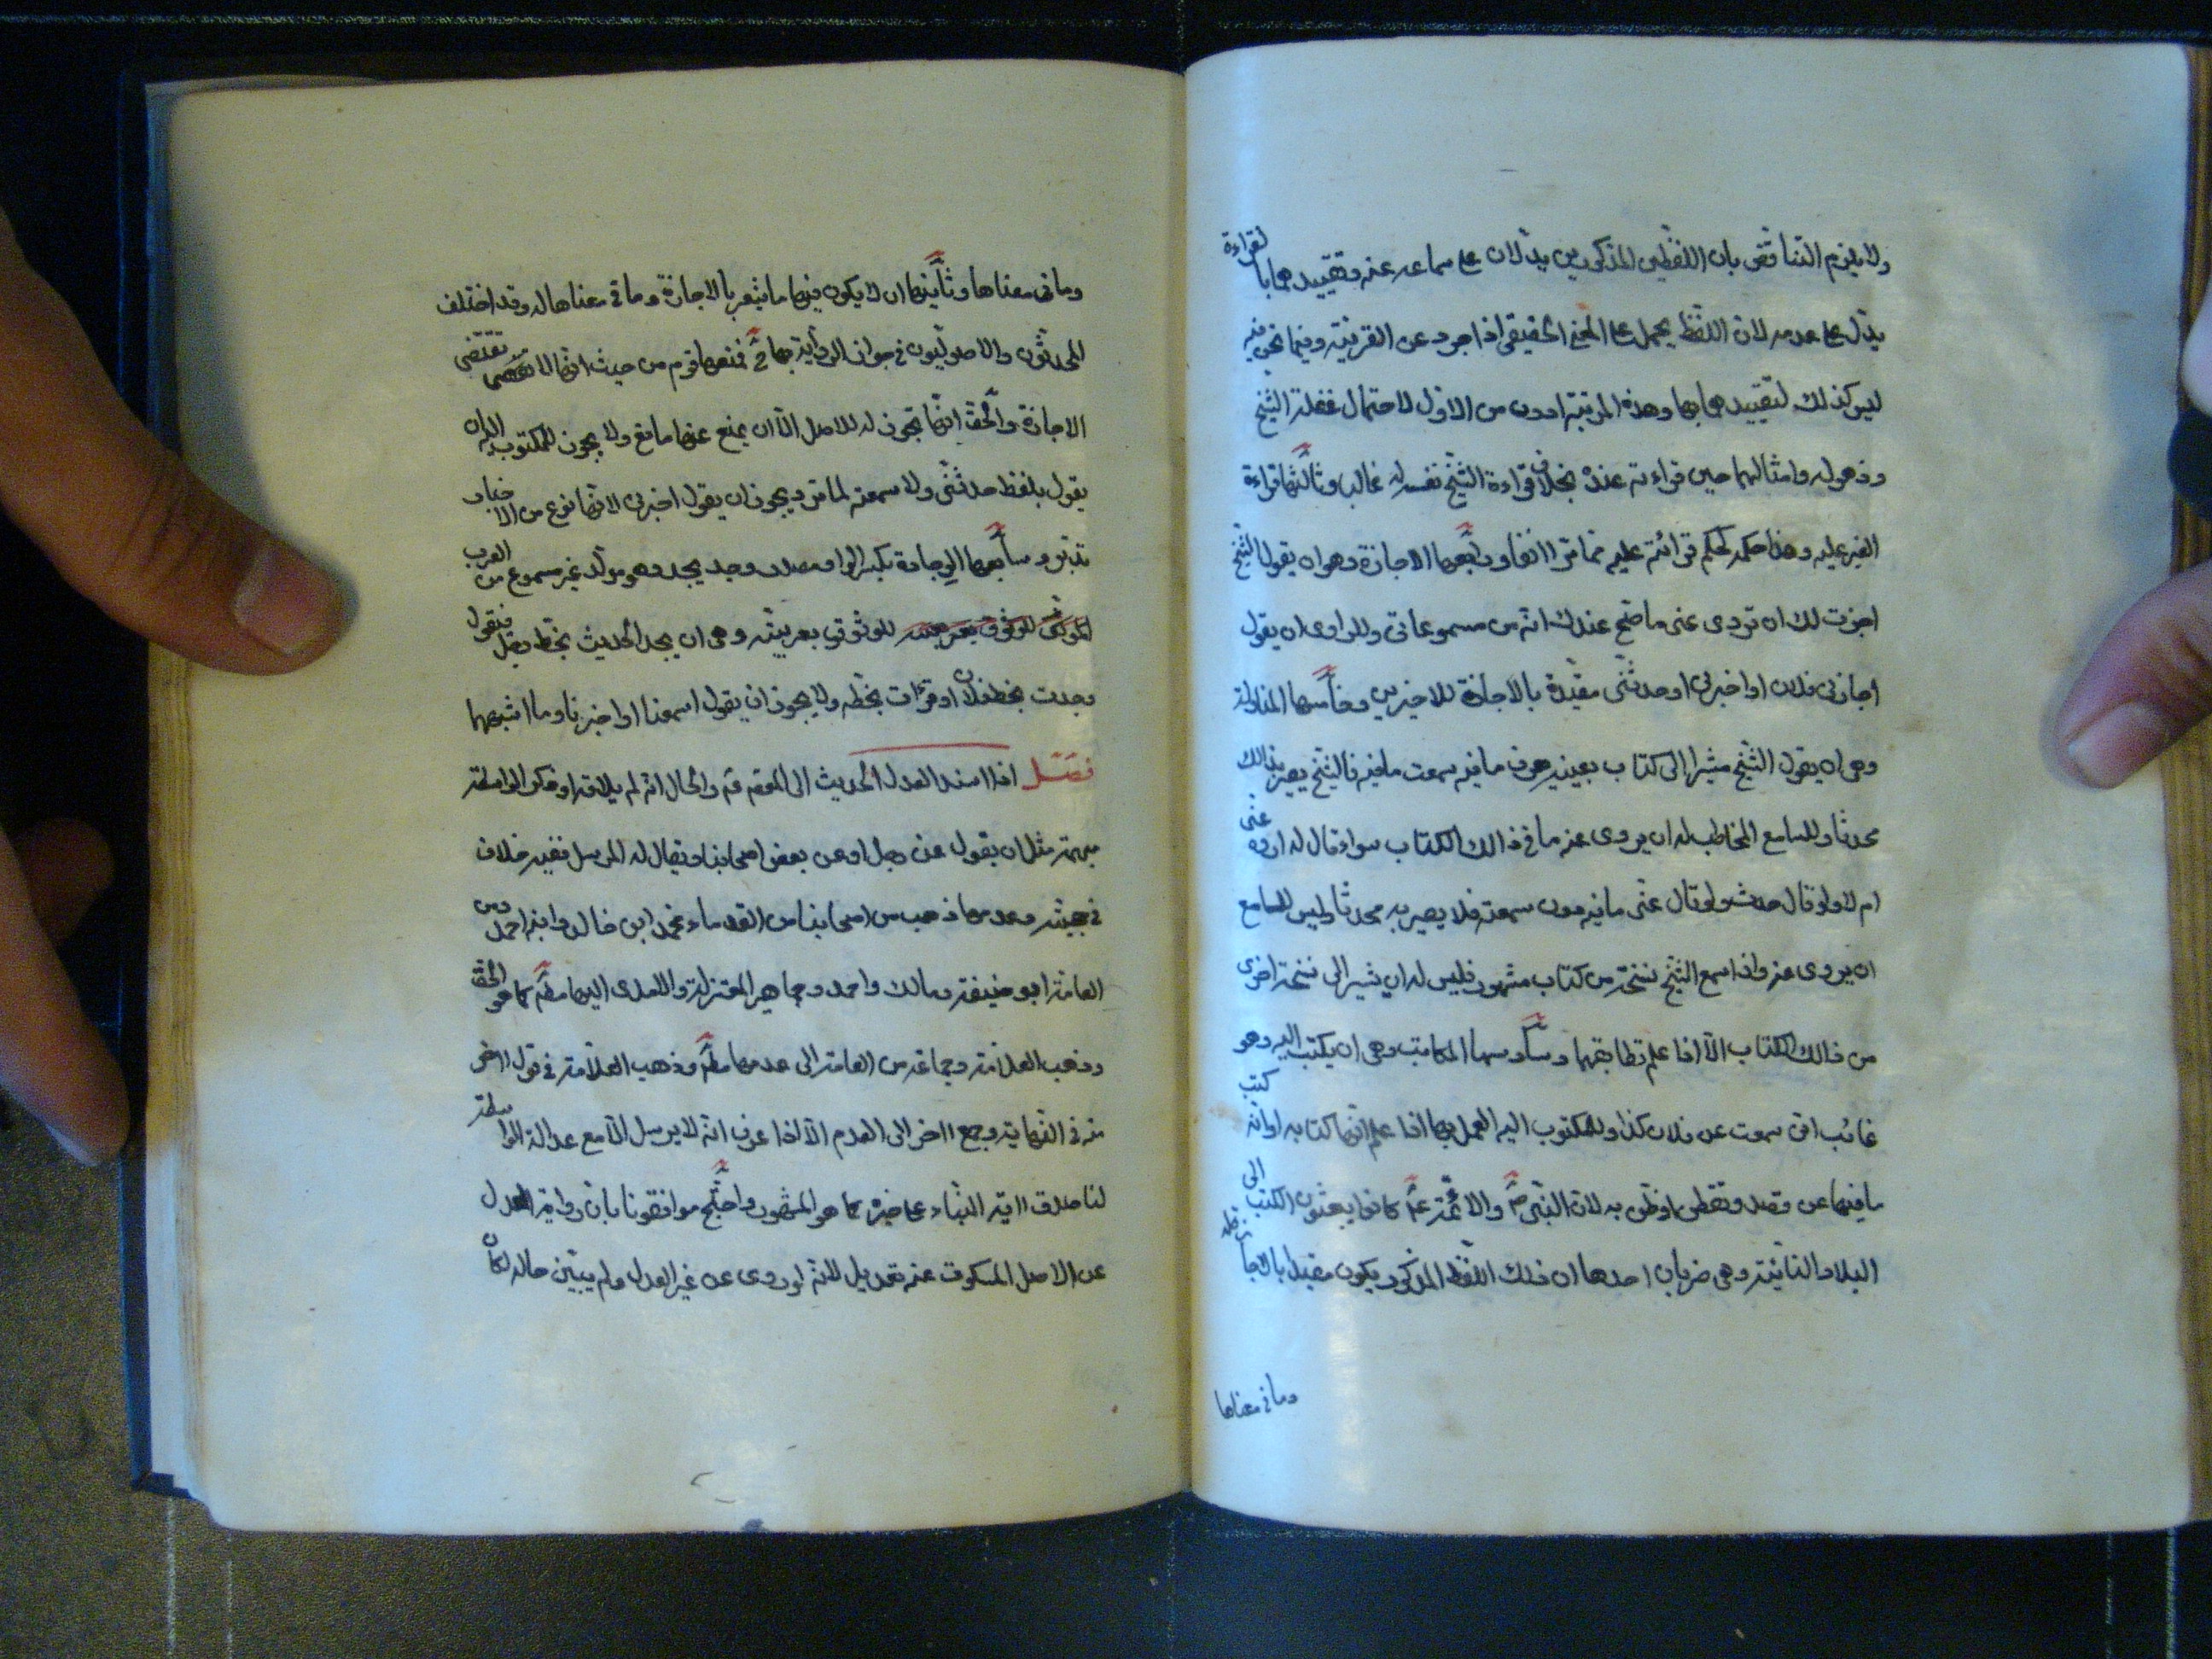 ولا يلزم التناقض بان اللفظين المذكورين يدلان على سماعه عنه وتقييدهما بالقراءة
يدل على عدمه لان اللفظ يحمل على المعنى الحقيقي اذا جرد عن القرينة وفيما نحن فيه
ليس كذلك لتقييدهما بها وهذه المرتبة ادون من الاول لاحتمال غفلة الشيخ
وذهوله وامثالهما حين قراءته عنده بخلاف قراءة الشيخ نفسه له غالبا وثالثها قراءة
الغير عليه وهذا حكمه كحكم قرائته عليه مما مر انفا ورابعها الاجازة وهو ان يقول الشيخ
اجزت لك ان تروى عنى ما صح عندك انه من مسموعاتى وللراوى ان يقول
اجازنى فلان او اخبرنى او حدثنى مقيدة بالاجازة للاخيرين وخامسها المناولة
وهى ان يقول الشيخ مشيرا الى كتاب بعينه يعرف ما فيه سمعت ما فيه فالشيخ يصير بذالك
محدثا وللسامع المخاطب له ان يروى عنه ما فى ذالك الكتاب سواء قال له اروه عنى
ام لا ولو قال حدث ولو قال عنى ما فيه دون سمعته فلا يصير به محدثا وليس للسامع
ان يروى عنه واذا سمع الشيخ نسخة من كتاب مشهور فليس له ان يشير الى نسخة اخرى
من ذالك الكتاب الا اذا علم تطابقهما وسادسها المكاتبه وهى ان يكتب اليه وهو
غائب انى سمعت عن فلان كذا وللمكتوب اليه العمل بها اذا علم انها كتابه او انه كتب
ما فيها عن قصد وتفطن او ظن به لان النبى ص والائمة ع كانوا يبعثون الكتب الى
البلاد النائية وهى ضربان احدها ان ذلك اللفظ المذكور يكون مقيدا بالاجازة
وما فى معناها
وما فى معناها وثانيها ان لا يكون فيها ما يشعر بالاجازة وما فى معناها له وقد اختلف
المحدثون والاصوليون فى جواز الرواية بها فمنعها قوم من حيث انها لا تقتضى
الاجازة والحق انها تجوز له للاصل الا ان يمنع عنها مانع ولا يجوز للمكتوب اليه ان
يقول بلفظ حدثنى ولا سمعته لما مر ويجوز ان يقول اخبرنى لانها نوع من الاخبار
تدبر وسابعها الوجادة بكسر الواو مصدر وجد يجد وهو مولد غير مسموع من العرب
الموثوق بعربيته وهى ان يجد الحديث بخط رجل فيقول
وجدت بخط فلان او قرات بخطه ولا يجوز ان يقول اسمعنا او اخبرنا وما اشبههما
فصل اذا اسند العدل الحديث الى المعصوم ع والحال انه لم يلاقه او ذكر الواسطة
مبهمة مثل ان يقول عن رجل او عن بعض اصحابنا ويقال له المرسل ففيه خلاف
فى حجيته وعدمها ذهب من اصحابنا من القدماء محمد ابن خالد وابنه احمد ومن
العامة ابو حنيفة ومالك واحمد وجماهير المعتزلة والامدى اليها مطم كما هو الحق
وذهب العلامة وجماعة من العامة الى عدمها مطم وذهب العلامة فى قول اخر
منه فى النهاية وجمع اخر الى العدم الا اذا عرف انه لا يرسل الا مع عدالة الواسطة
لنا صدق اية النباء على خبره كما هو المشهور واحتج موافقونا بان رواية العدل
عن الاصل المسكوت عنه تعديل لانه لو روى عن غير العدل ولم يبين حاله لكان